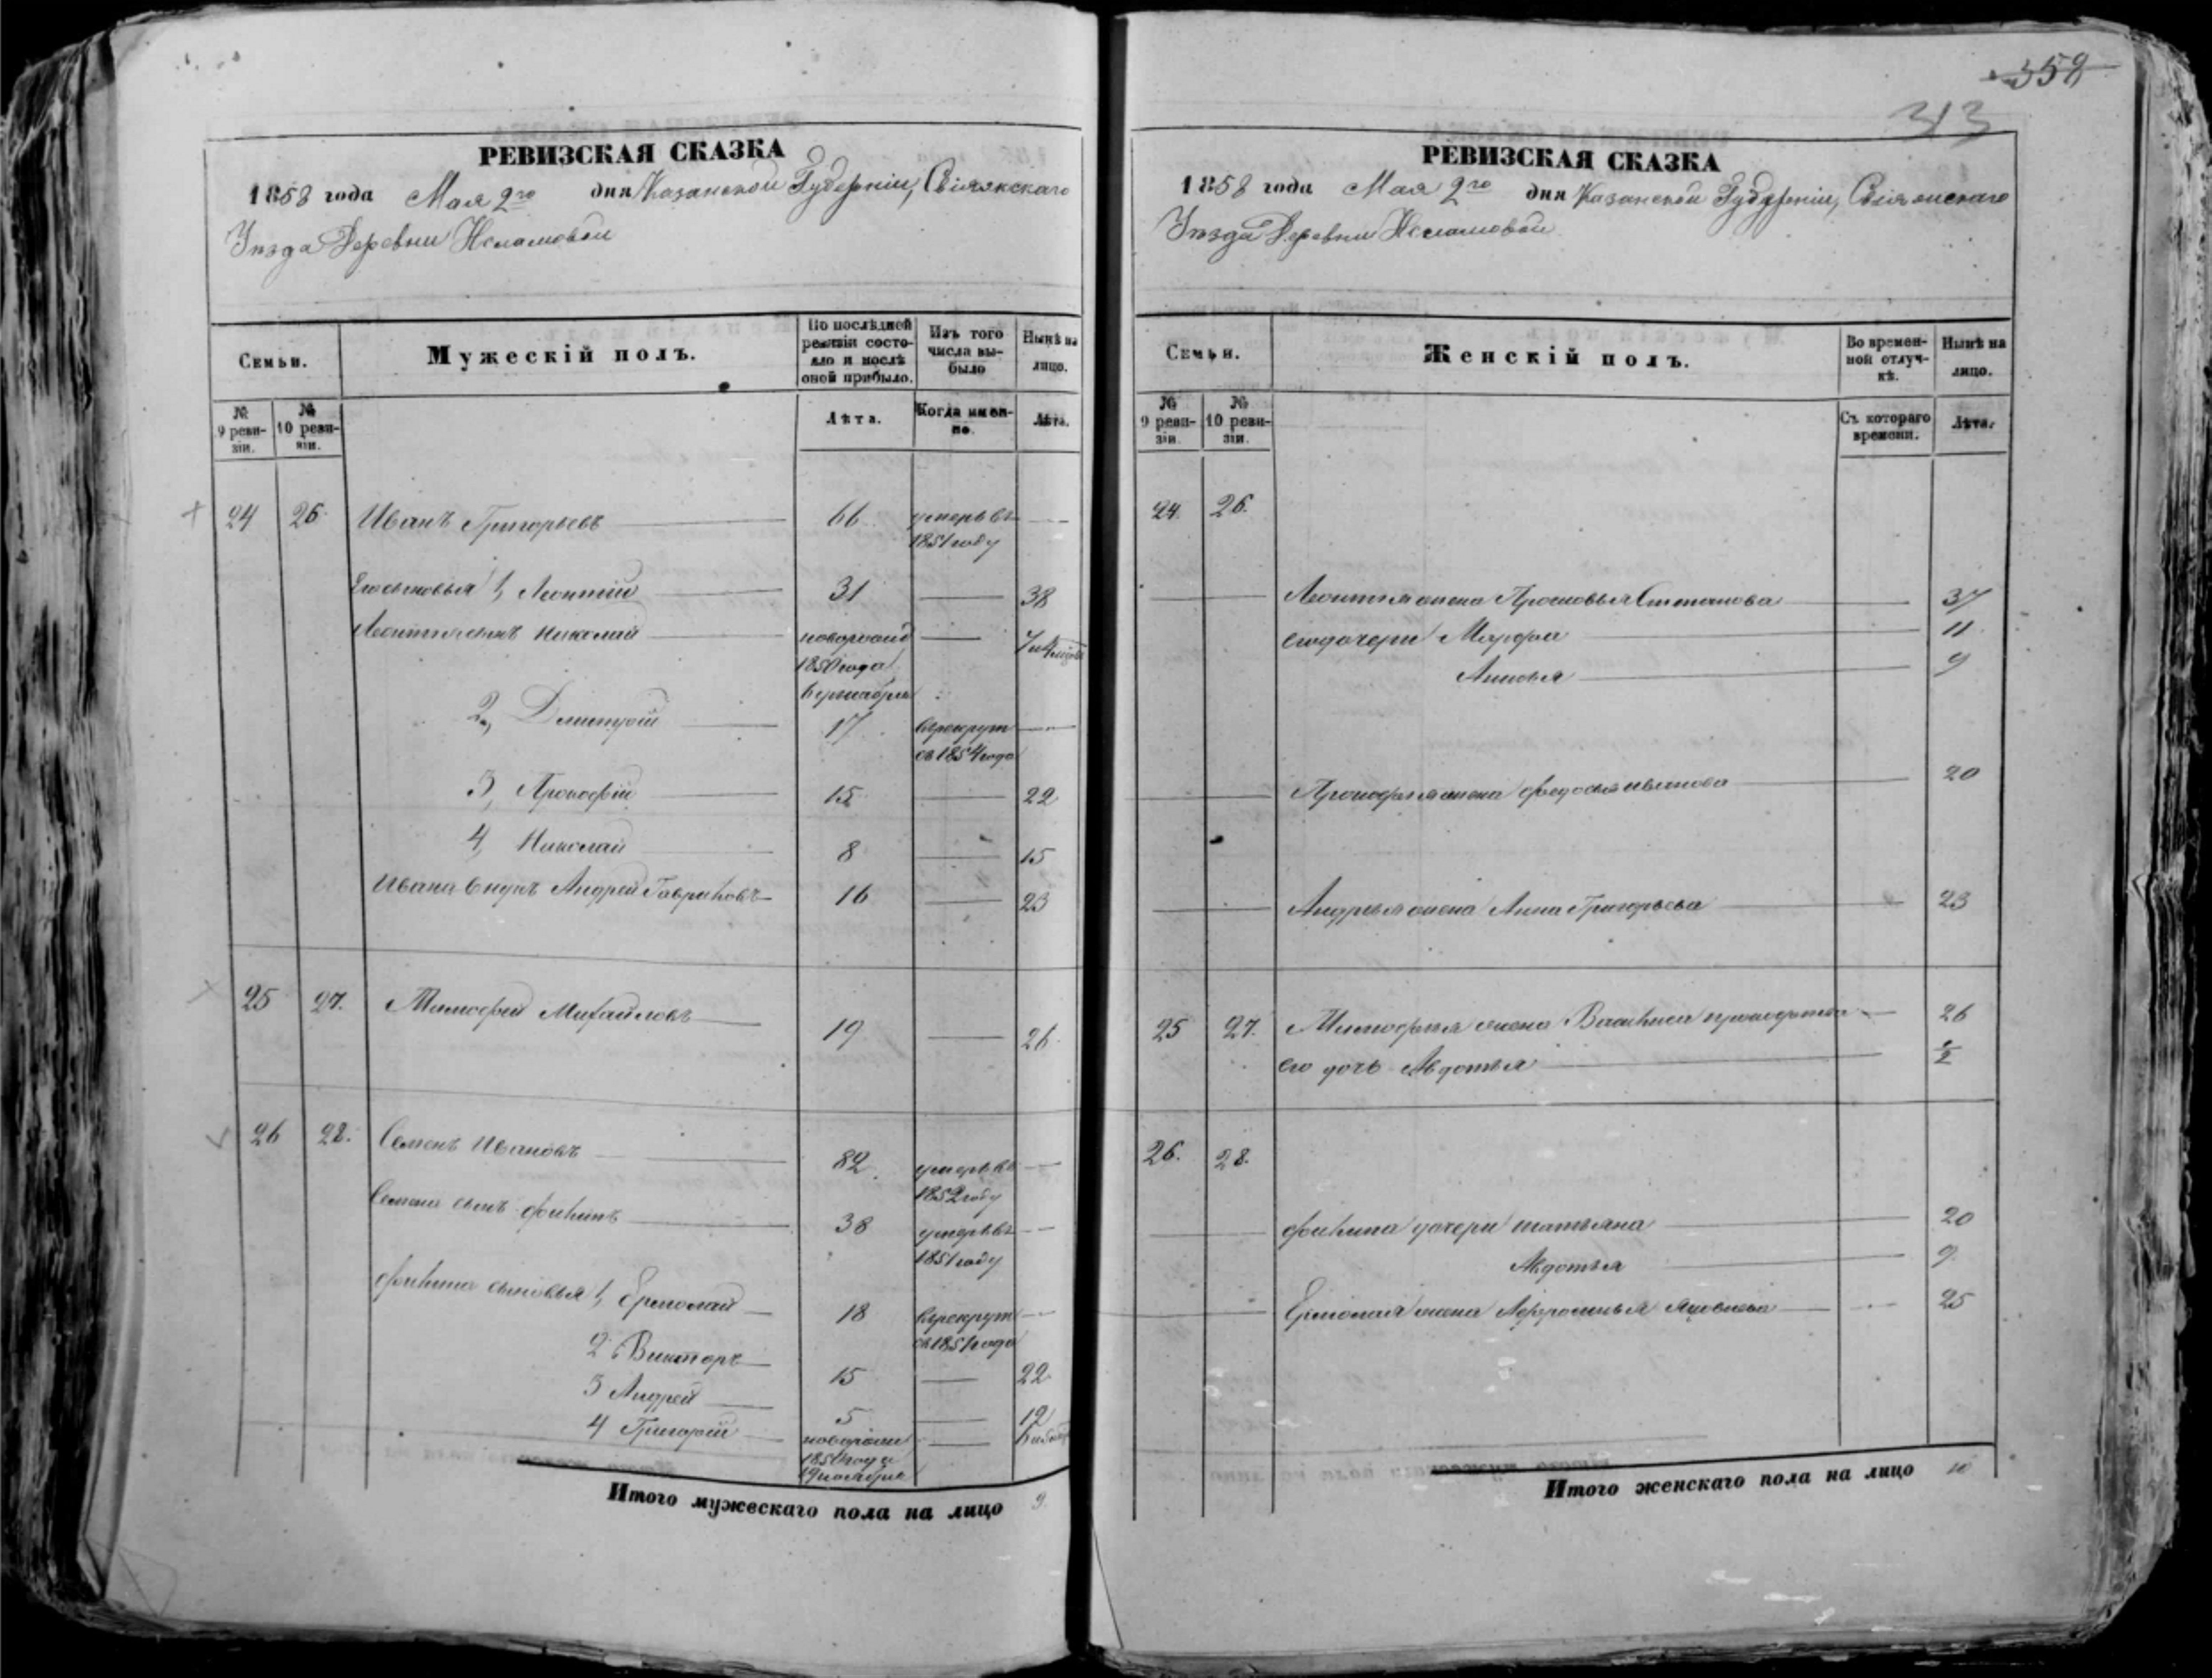 358
313
РЕВИЗСКАЯ СКАЗКА
1858 года Мая 2го дня Казанской Губерніи, Свіяжскаго
Уѣзда Деревни
Семьи.
Мужескій полъ.
По послѣдней ревизіи состояло и послѣ оной прибыло.
Изъ того числа выбыло
Нынѣ на лицо.
№ 9 ревизіи.
№ 10 ревизіи.
Лѣта.
Когда именно.
Лѣта.
24 26. Иванъ Григорьевъ 66 умеръ въ
1851 году
Его сыновья 1, Леонтій 31 38
Леонтія сынъ Николай новорожд
1850 года
2, Дмитрій 17 въ рекрут
съ 1854 года
3, Прокофій 15 22
4, Николай 8 15
Ивана внукъ Андрей Гавриловъ 16 23
25 27. Тимофей Михайловъ 19 26
26 28. Семенъ Ивановъ 82 умеръ въ
1852 году
Семена сынъ Филипъ 38 умеръ въ
1851 году
Филипа сыновья 1, Ермолай 18 въ рекрут
съ 1851 года
2 Викторъ 15 22
3 Андрей 5 12
4 Григорій новорожд
19 ноября
Итого мужескаго пола на лицо 9.
РЕВИЗСКАЯ СКАЗКА
1858 года Мая 2го дня Казанской Губерніи, Свіяжскаго
Уѣзда Деревни
Семьи.
Женскій полъ.
Во временной отлучкѣ.
Нынѣ на лицо.
№ 9 ревизіи.
№ 10 ревизіи.
Съ котораго времени.
Лѣта.
24. 26.
Леонтія жена Прасковья Степанова 37
его дочери Марфа 11
9
Прокофья жена Федосья Иванова 20
Андрея жена Анна Григорьева 23
25 27. Тимофея жена Василиса Прокофьева 26
его дочь Авдотья
26. 28.
Филипа дочери Татьяна 20
Авдотья 9.
Ермолая жена Афросинья Яковлева 25
Итого женскаго пола на лицо 10